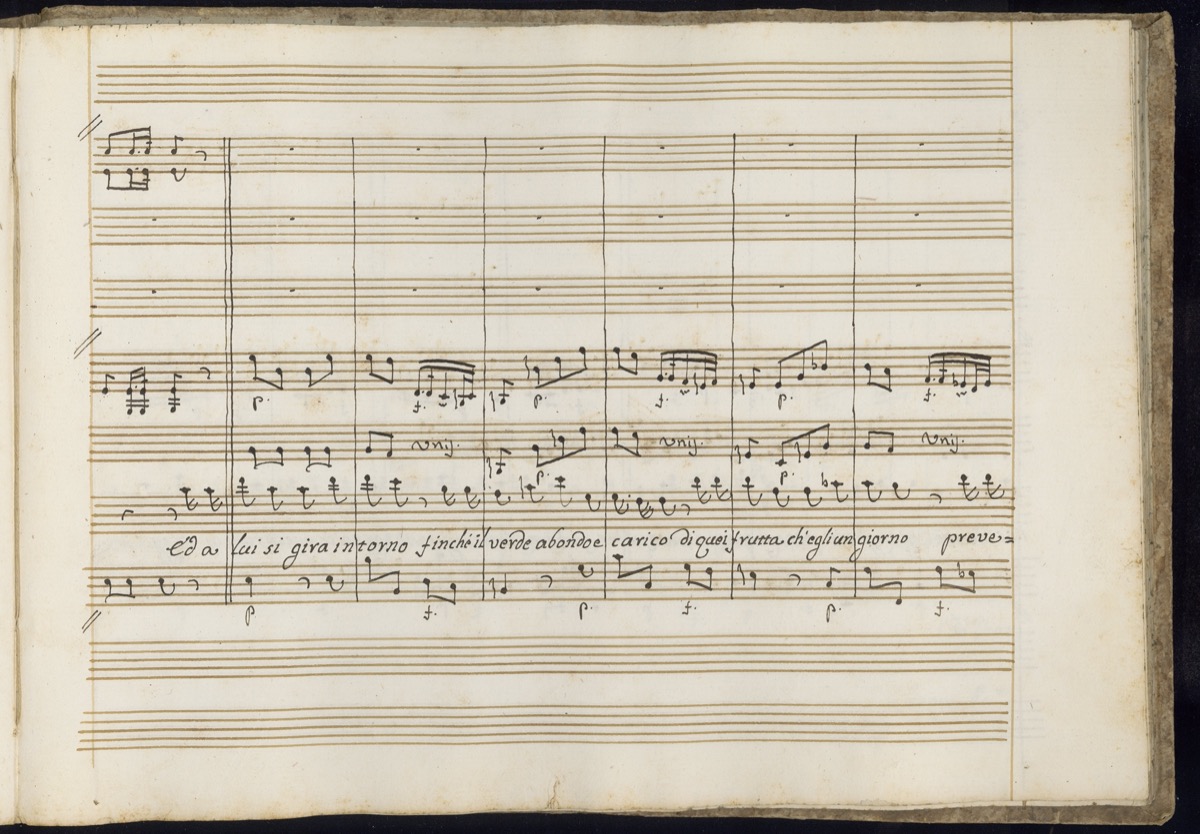 p. f. p. f. p. f.
unis. p. unis. p. unis.
Ed a lui si gira intorno finché il verde abondo e carico di quei frutta ch'egli un giorno preve=
p f. p. f. p. f.